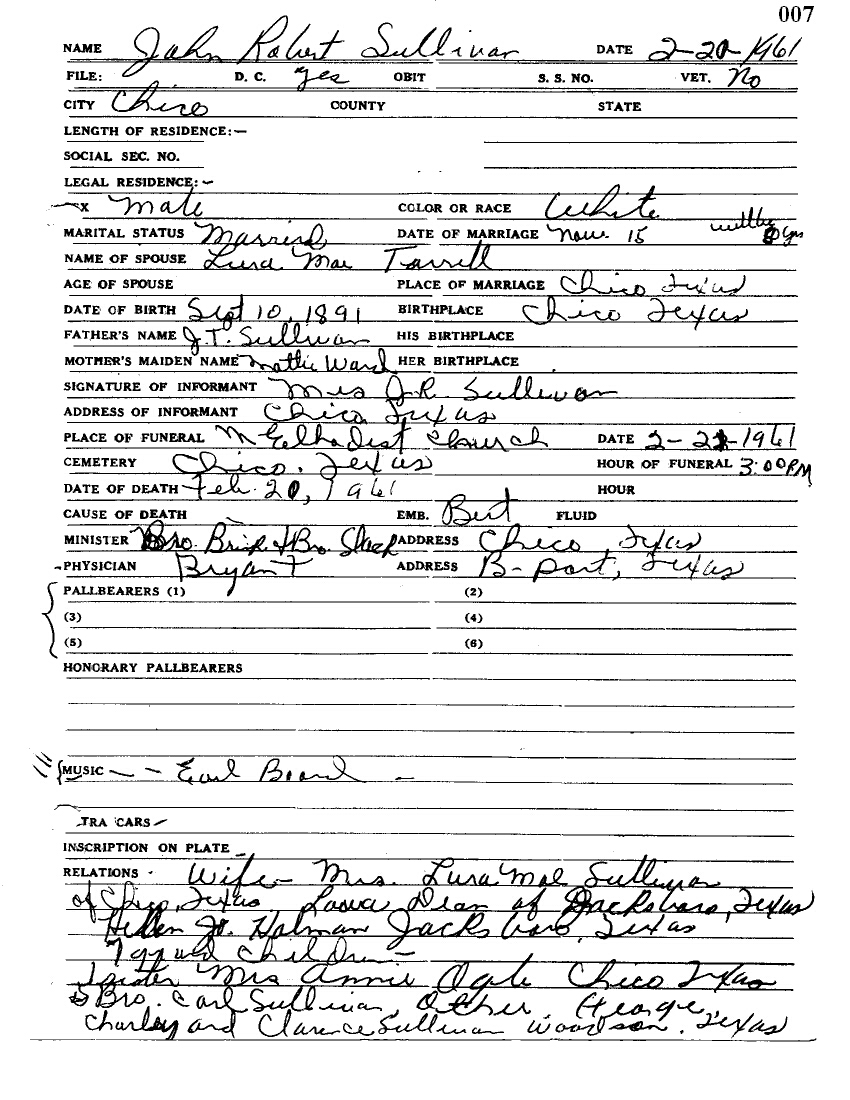 007
NAME John Robert Sullivan DATE 2-20-1961
FILE: D. C. yes OBIT S. S. NO. VET. No
CITY Chico COUNTY STATE
LENGTH OF RESIDENCE:—
SOCIAL SEC. NO.
LEGAL RESIDENCE:—
X Male COLOR OR RACE White
MARITAL STATUS Married DATE OF MARRIAGE Nov. 15 yrs
NAME OF SPOUSE Lura Mae Tarrell
AGE OF SPOUSE PLACE OF MARRIAGE Chico Texas
DATE OF BIRTH Sept 10, 1891 BIRTHPLACE Chico Texas
FATHER'S NAME J.T. Sullivan HIS BIRTHPLACE
MOTHER'S MAIDEN NAME Mattie Ward HER BIRTHPLACE
SIGNATURE OF INFORMANT Mrs J.R. Sullivan
ADDRESS OF INFORMANT Chico Texas
PLACE OF FUNERAL Methodist Church DATE 2-21-1961
CEMETERY Chico, Texas HOUR OF FUNERAL 3:00 PM
DATE OF DEATH Feb. 20, 1961 HOUR
CAUSE OF DEATH EMB. Bert FLUID
MINISTER Bro. & Bro. ADDRESS Chico, Texas
PHYSICIAN Bryant ADDRESS B-port, Texas
PALLBEARERS (1) (2)
(3) (4)
(5) (6)
HONORARY PALLBEARERS
MUSIC — — Earl Beard —
TRA CARS
INSCRIPTION ON PLATE
RELATIONS - Wife - Mrs. Lura Mae Sullivan
of Chico, Texas. Dean of Jacksboro, Texas
Hellen Jo. Holman Jacksboro, Texas
7 grand children -
1 sister Mrs Annie Ogle Chico Texas
5 Bro. Carl Sullivan, Other, George,
Charley and Clarence Sullivan Woodson, Texas